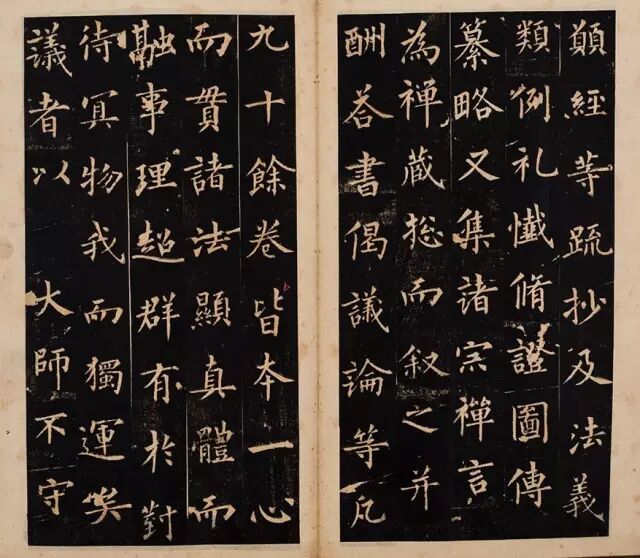 願經等疏抄及法義
類例礼懺脩證圖傳
纂略又集諸宗禪言
為禪藏揔而叙之并
酬荅書偈議論等凡
九十餘卷皆本一心
而貫諸法顯真體而
融事理超群有於對
待冥物我而獨運矣
議者以大師不守